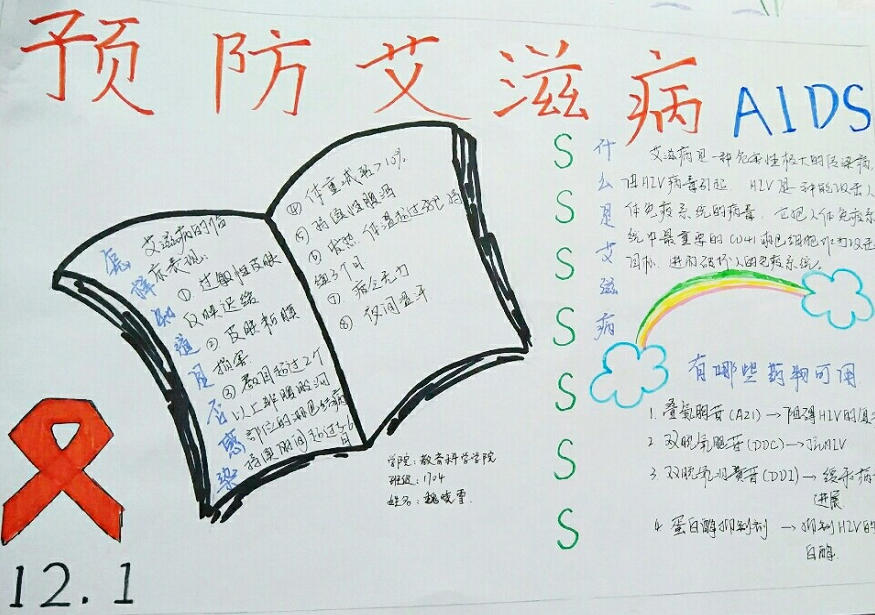 预防艾滋病 AIDS
怎样知道是否感染
艾滋病的临
床表现:
① 过敏性皮肤
反映迟缓
② 皮肤粘膜
损害
③ 数目超过2个
以上非腹股沟
部位的
持续期间超过3-6
月
④ 体重减轻>10%
⑤ 慢性腹泻
⑥ 发热 体温超过38℃ 持
续3个月
⑦ 疲乏无力
⑧ 夜间盗汗
学院:教育科学学院
班级:1704
姓名:魏晓雪
S
S
S
S
S
S
S
什么是艾滋病
艾滋病是一种危害性极大的传染病,
由HIV病毒引起. HIV是一种能攻击人
体免疫系统的病毒. 它把人体免疫系
统中最重要的CD4T淋巴细胞作为攻击
目标, 进而破坏人的免疫系统.
有哪些药物可用
1. 叠氮胸苷(AZT) → 阻碍HIV的
2 双脱氧胞苷(DDC) → 抗HIV
3 双脱氧肌苷(DDI) → 缓和病
进展
4. 蛋白酶抑制剂 → 抑制HIV的
白酶.
12.1